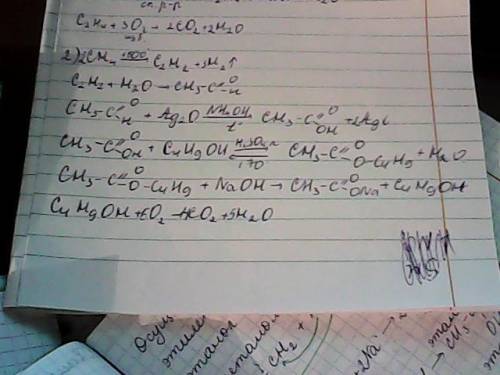 р-р
C₂H₄ + 3O₂ → 2CO₂ + 2H₂O
2) 2CH₄ C₂H₂ + 3H₂↑
C₂H₂ + H₂O → CH₃-C O H
CH₃-C O H + Ag₂O NH₄OH t° CH₃-C O OH + 2Ag↓
CH₃-C O OH + C₄H₉OH H₂SO₄ 170 CH₃-C O O-C₄H₉ + H₂O
CH₃-C O O-C₄H₉ + NaOH → CH₃-C O ONa + C₄H₉OH
C₄H₉OH + 6O₂ → 4CO₂ + 5H₂O
Осущ
этиле
этанола
CH₂ +
этан
CH₃